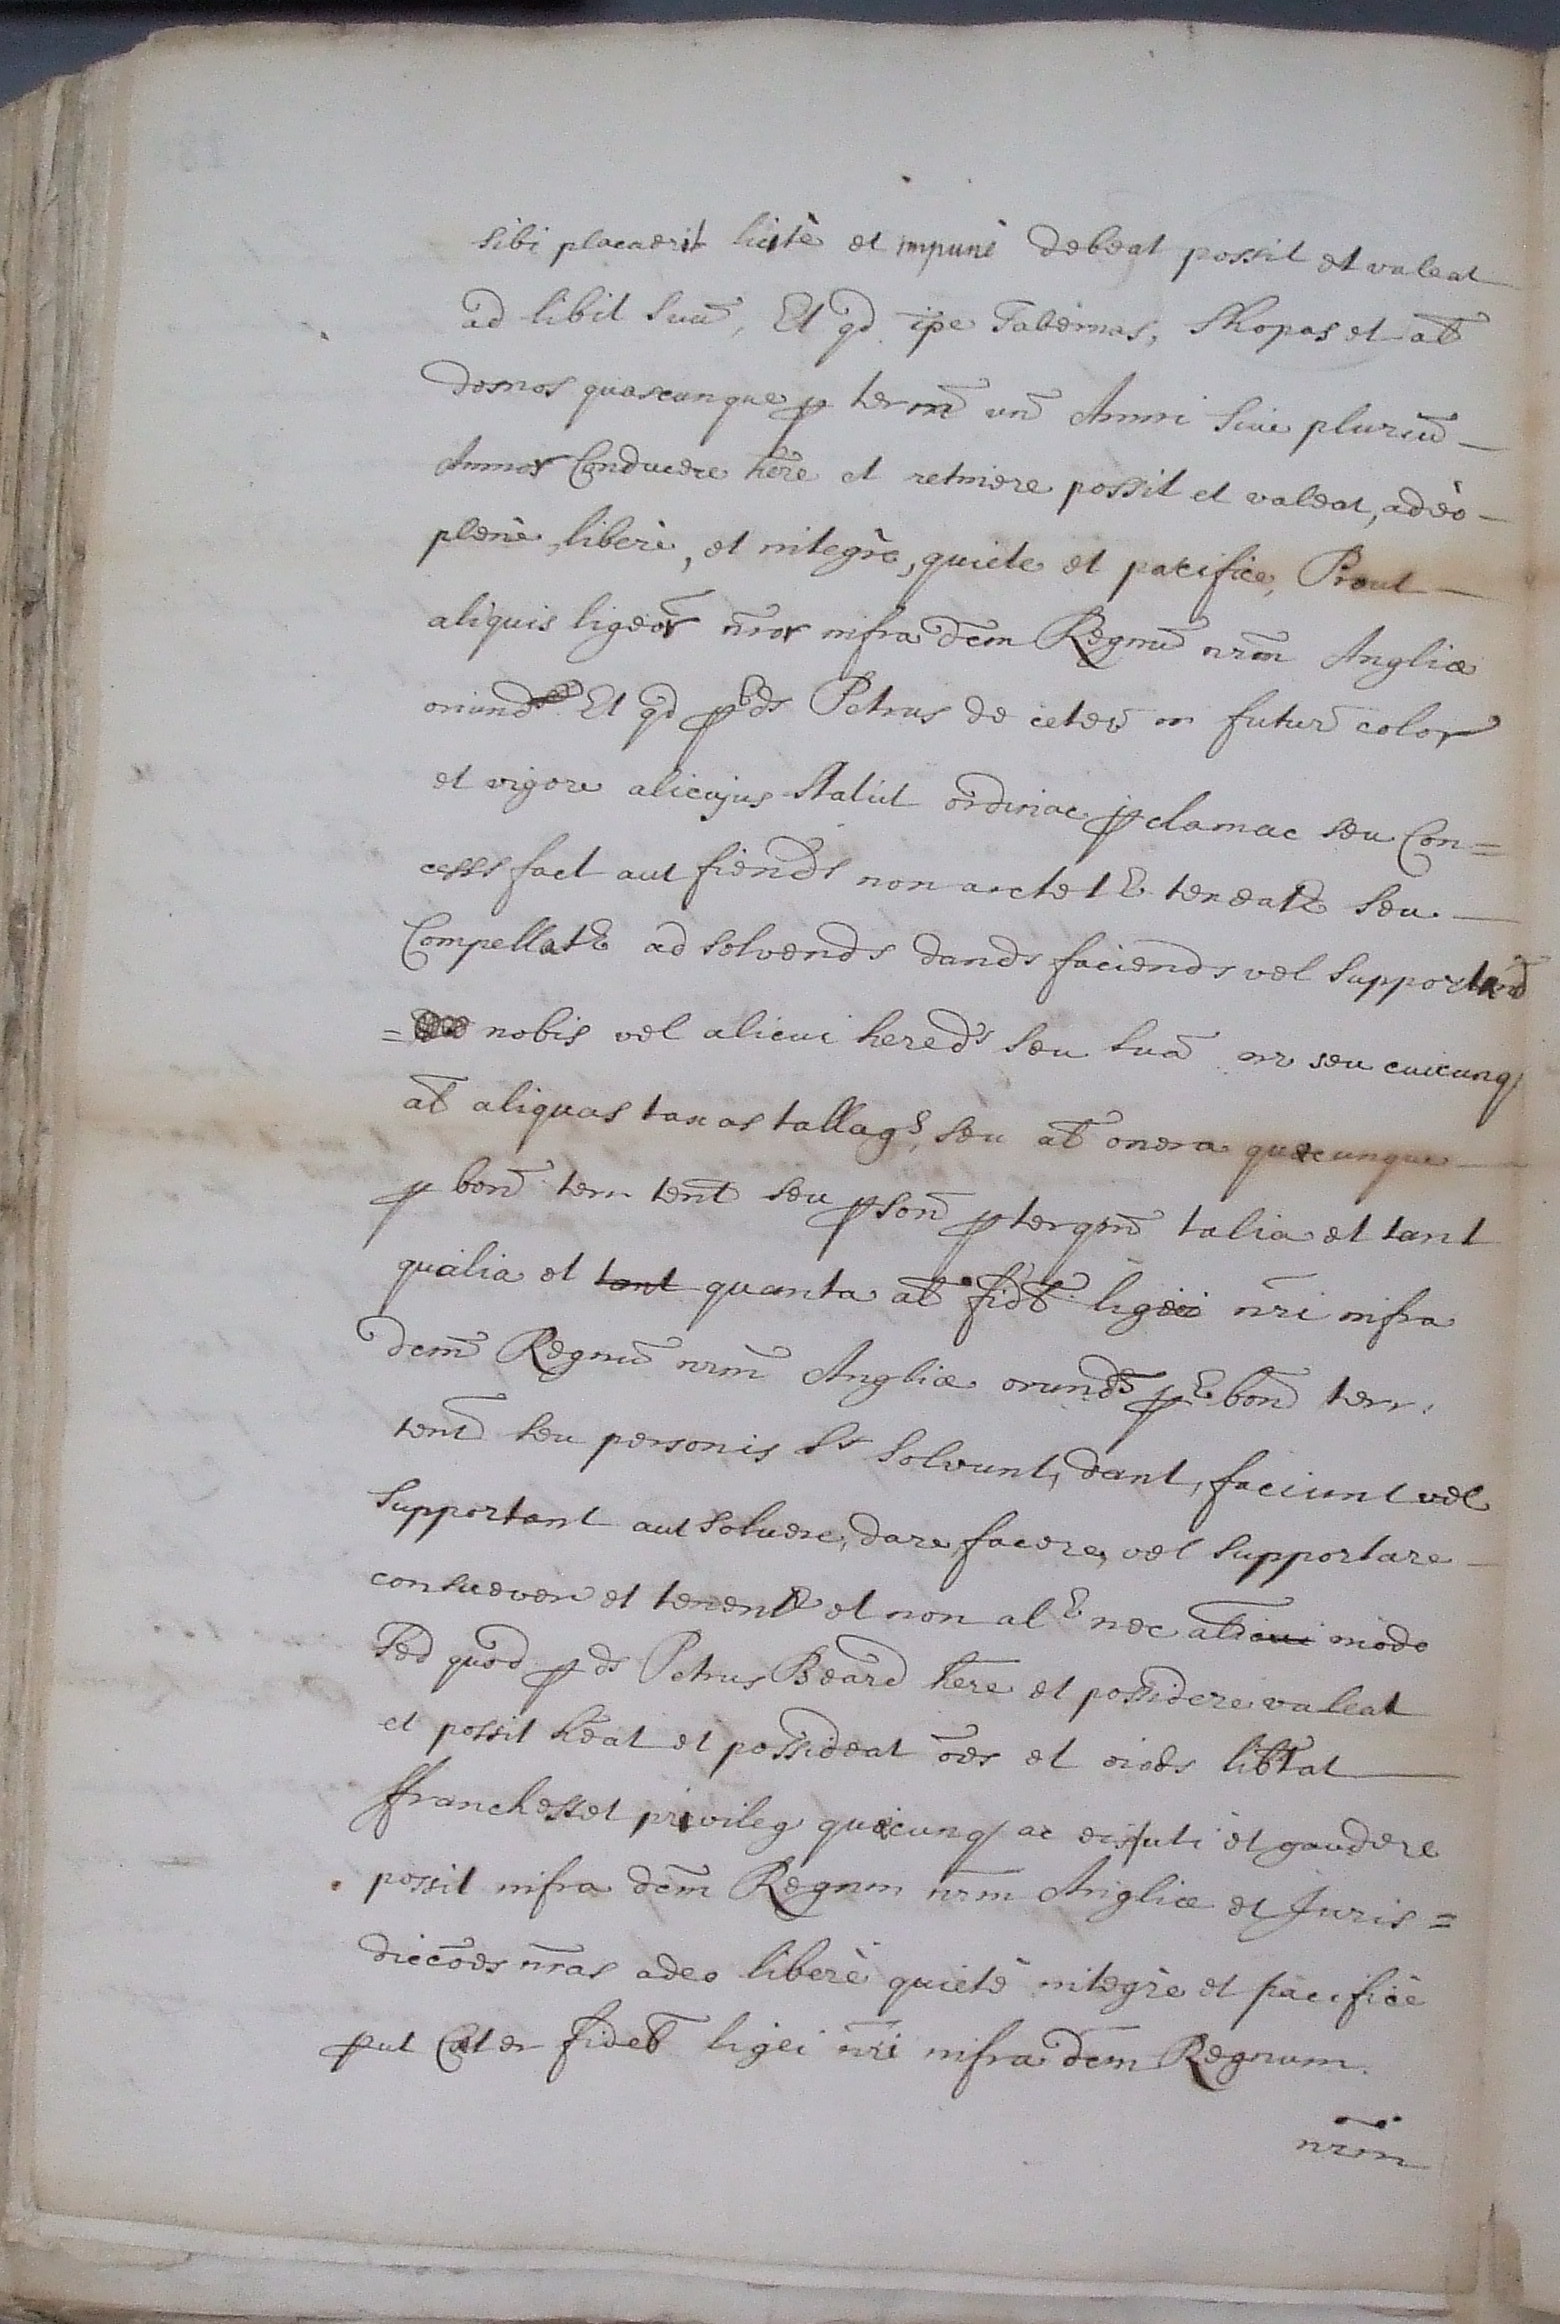 sibi placuerit licitè et impunè debeat possit et valeat
ad libit suũ, Et qd ip̃e Tabernas, Shopas et al̃
domos quascunque p term̃ un̄ Anni sive pluriũ
Annor Conducere h̃ere et retinere possit et valeat, adeò
plenè, liberè, et integrè, quiete et pacifice, Prout
aliquis ligeor̃ n̄ror infra dc̃m Regnũ nrm̃ Angliæ
oriund Et qd p̃ds Petrus de ceter̃ in futur̃ color
et vigore alicujus Statut ordinac p̱clamac seu Con=
cess fact aut fiends non arctet̉ teneat̉ seu
Compellat̉ ad solvends dands faciends vel Supportand
= nobis vel alicui hereds seu suc̃ nr seu cuicunq
al̃ aliquas taxas tallags, seu al̃ onera quæcunque
p bon̄ terr ten̄t seu p̱son̄ p̱terqm̄ talia et tant
qualia et tant quanta al̃ fidel̃ ligei n̄ri infra
dc̃m Regnũ nrm̃ Angliæ oriunds p̱ bon̄ terr
ten̄t seu personis ss solvunt, dant, faciunt vel
Supportant aut soluere, dare, facere, vel supportare
consuever et tenent̉ et non al̉ nec al̃icui modo
Sed quod p̱ds Petrus Beard h̃ere et possidere valeat
et possit h̃eat et possideat õẽs et oiods lib̃tat
ffranchess et privileg quæcunq ac eis uti et gaudere
possit infra dc̃m Regnm nrm̃ Angliæ et Juris=
diccõẽs n̄ras adeo liberè quietè integrè et pacificè
p̱ut Cæter fidel̃ ligei n̄ri infra dc̃m Regnum
nrm̃